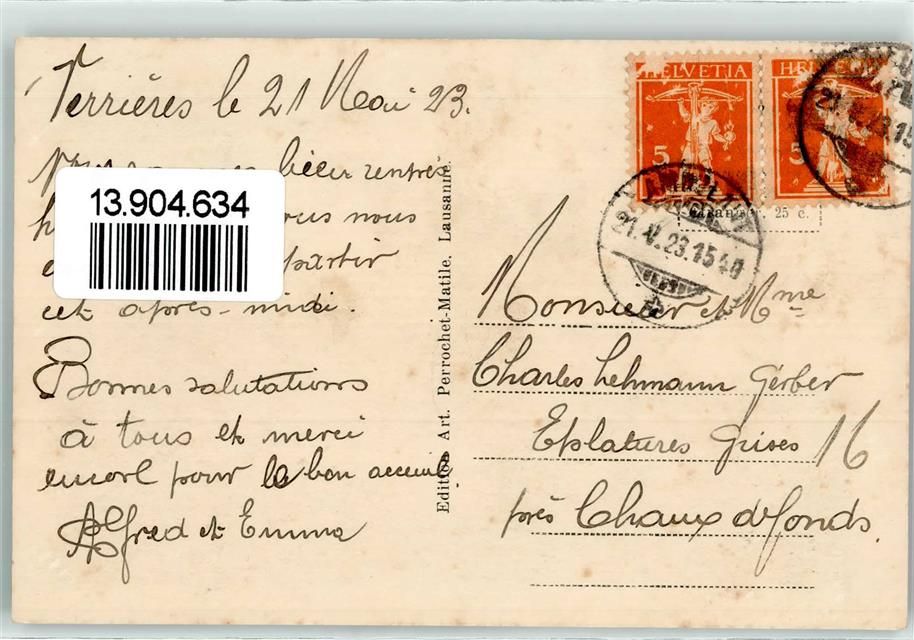 Verrières le 21 Mai 23.
bien rentrés
13.904.634
nous
partir
cet après-midi.
Bonnes salutations
à tous et merci
encore pour le bon accueil
Alfred et Emma
Edition Art. Perrochet-Matile, Lausanne.
HELVETIA
5
HELVETIA
5
21.V.23.15
21.V.23.1540
25 c.
Monsieur et Mme
Charles Lehmann Gerber
Eplatures Grises 16
près Chaux de fonds.